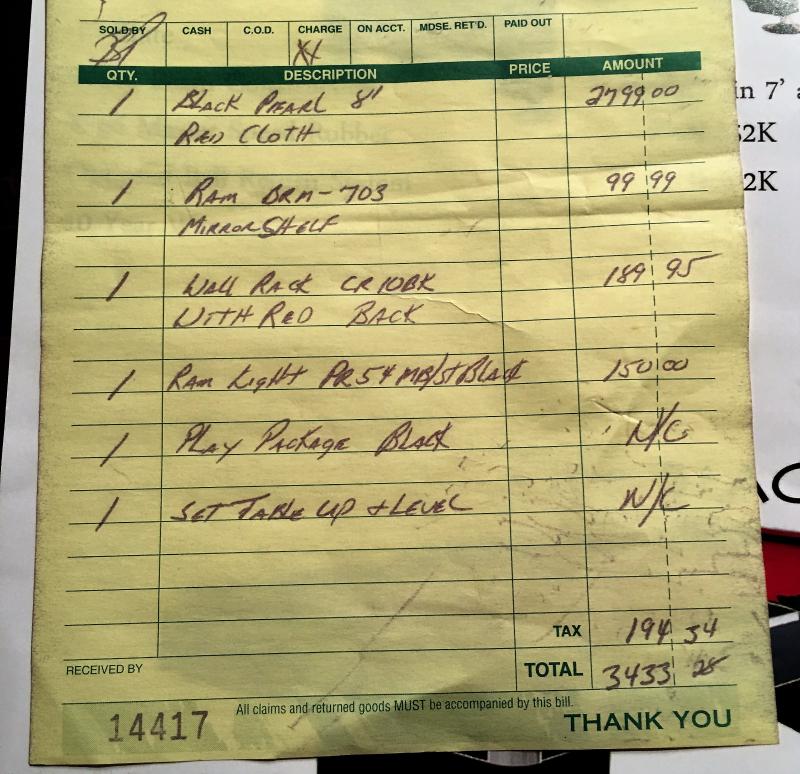 SOLD BY CASH C.O.D. CHARGE ON ACCT. MDSE. RET'D. PAID OUT
QTY. DESCRIPTION PRICE AMOUNT
1 BLACK PEARL 8' 2799 00
RED CLOTH
1 RAM BRM-703 99 99
MIRROR SHELF
1 WALL RACK CR10BK 189 95
WITH RED BACK
1 RAM LIGHT PR54 MB/ST BLACK 150 00
1 PLAY PACKAGE BLACK N/C
1 SET TABLE UP + LEVEL N/C
TAX 194 34
RECEIVED BY
TOTAL 3433 28
14417
All claims and returned goods MUST be accompanied by this bill.
THANK YOU
in 7' a
2K
2K